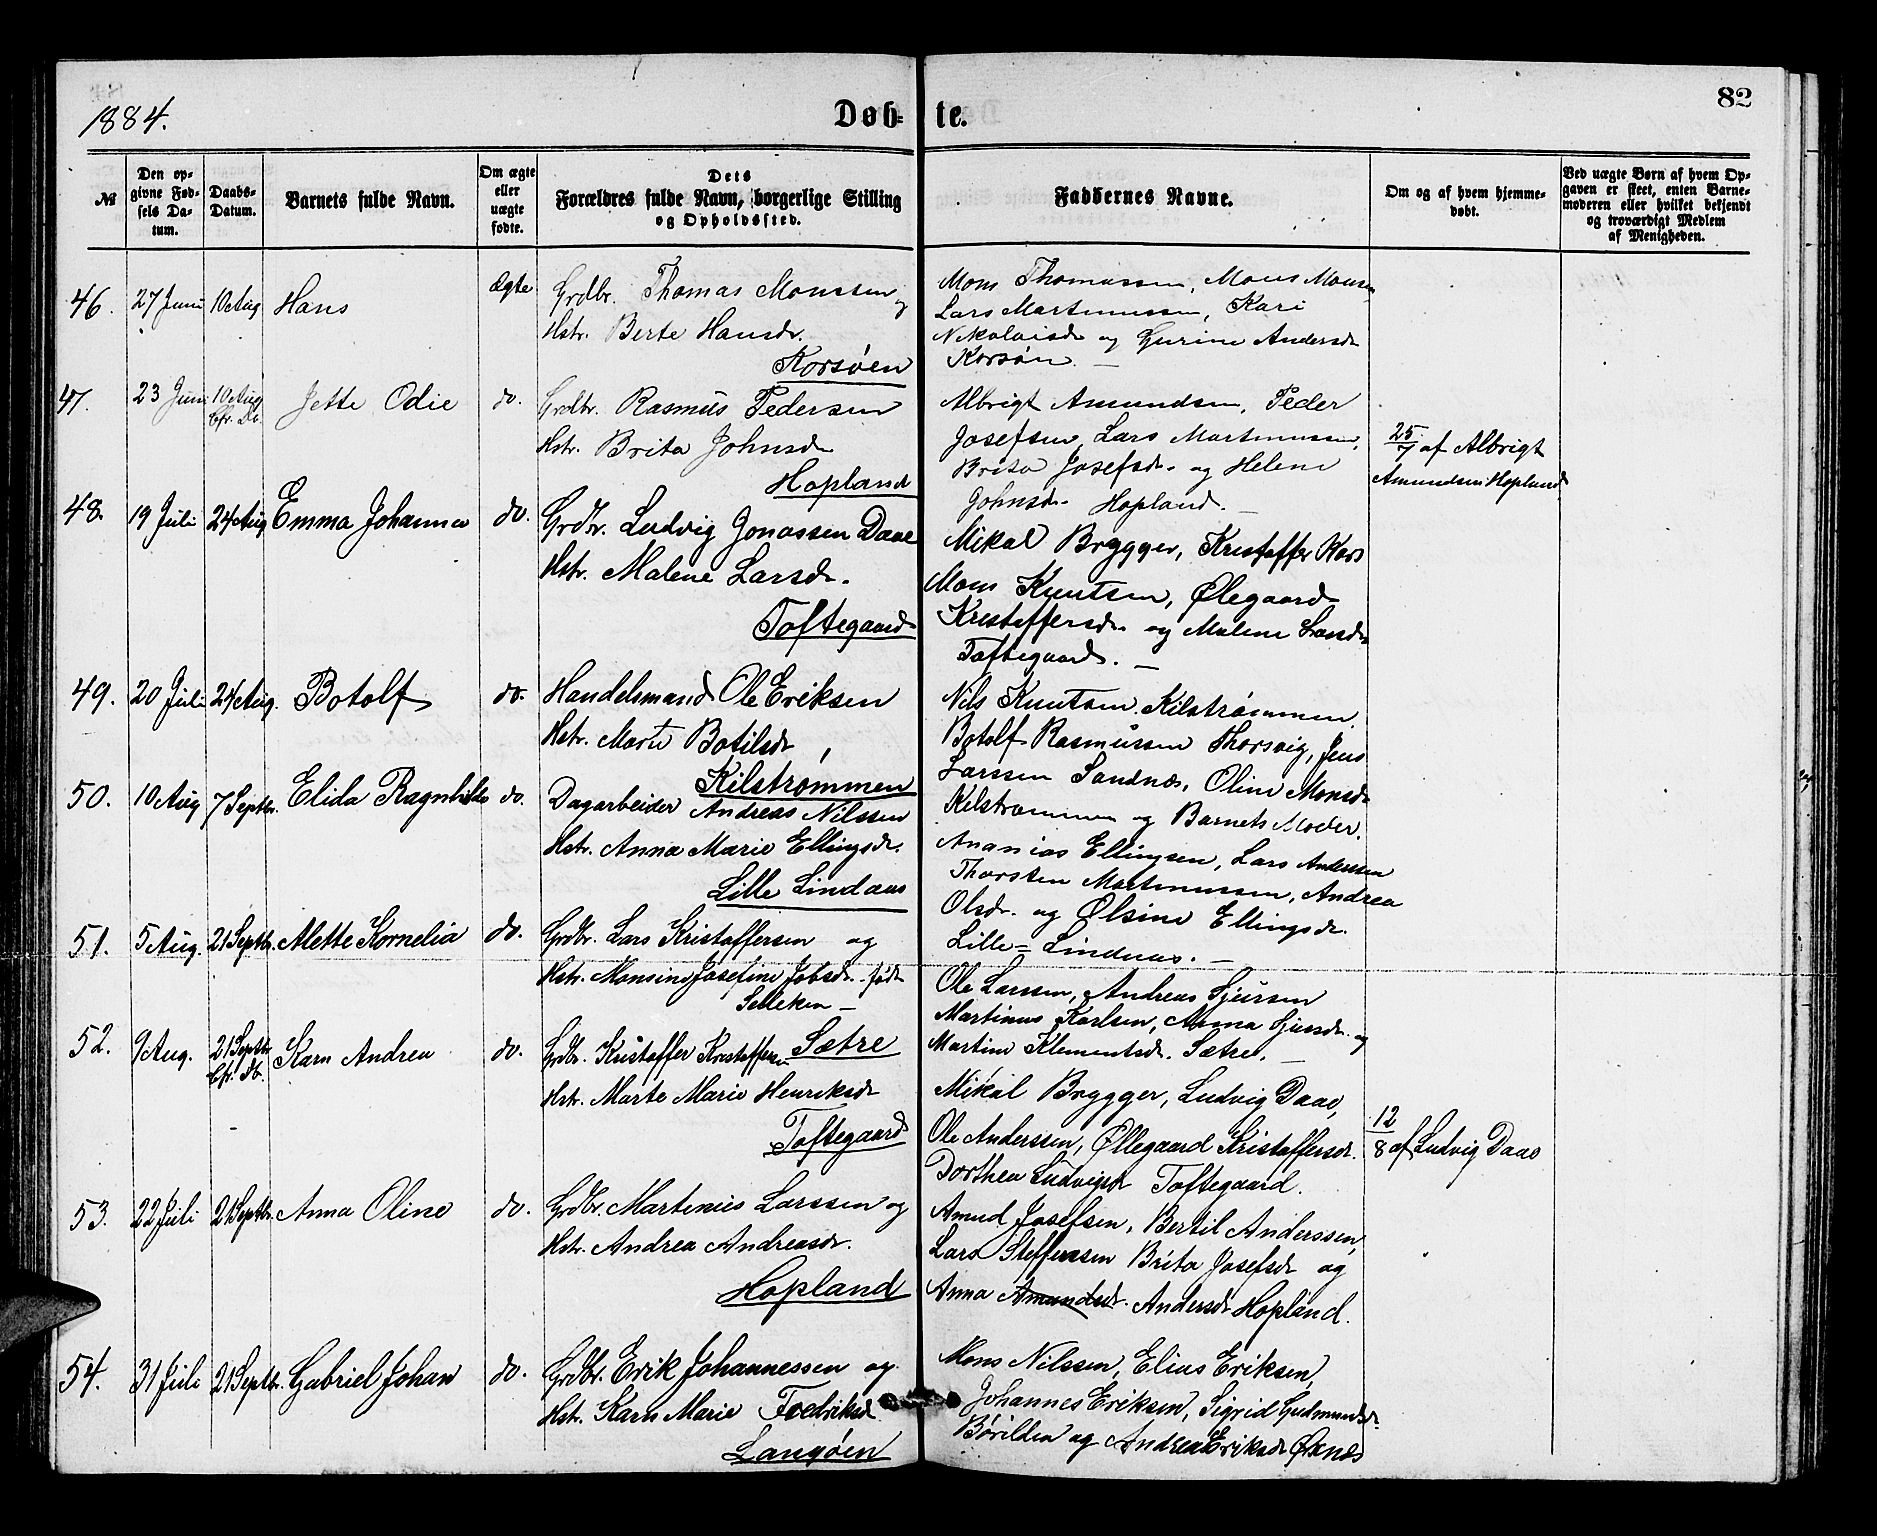 1884.
Døb-te.
82
№
Den op-
givne Fød-
sels Da-
tum.
Daabs-
Datum.
Barnets fulde Navn.
Om ægte
eller
uægte
fødte.
Dets
Forældres fulde Navn, borgerlige Stilling
og Opholdssted.
Faddernes Navne.
Om og af hvem hjemme-
døbt.
Ved uægte Børn af hvem Op-
gaven er skeet, enten Barne-
moderen eller hvilket bekjendt
og troværdigt Medlem
af Menigheden.
46. 27 Juni 10 Aug Hans Ægte Grdbr. Thomas Monssen og
Hstr. Berte Hansdr.
Korsøen
Mons Thomassen, Mons Monsen
Lars Martinussen, Kari
Nikolaisdr og Gurine Andersdr
Korsøen. —
47. 23 Juni 10 Aug Jette Odie do. Grdbr. Rasmus Pedersen
Cfr. Db.
Hstr. Brita Johnsdr
Hopland
Albrigt Amundsen, Peder
Josefsen, Lars Martinussen,
Brita Josefsdr. og Helene
Johnsdr. Hopland. —
25/7 af Albrigt
Amundsen Hopland
48. 19 Juli 24 Aug Emma Johanna do. Grdbr. Ludvig Jonassen Daae
Hstr. Malene Larsdr.
Toftegaard
Mikal Brygger, Kristoffer Kors
Mons Knutsen, Ølegaard
Kristoffersdr. og Malene Larsdr
Toftegaard. —
49. 20 Juli 24 Aug. Botolf do. Handelsmand Ole Eriksen
Hstr. Marte Botilsdr,
Kilstrømmen
Nils Knutsen Kilstrømmen,
Botolf Rasmussen Thorsvig, Jens
Larssen Sandnæs, Oline Monsdr
Kilstrømmen og Barnets Moder.
50. 10 Aug 7 Septbr. Elida Ragnhilda do. Dagarbeider Andreas Nilssen
Hstr. Anna Marie Ellingsdr.
Lille Lindaas
Ananias Ellingsen, Lars Anderssen
Thorsten Martinussen, Andrea
Olsdr. og Ølsine Ellingsdr.
Lille-Lindaas. —
51. 5 Aug. 21 Septbr. Mette Kornelia do. Grdbr. Lars Kristoffersen og
Hstr. Monsine Josefine Jobsdr. født
Selleken —
Sætre
Ole Larssen, Andreas Sjurssen
Martinus Karlsen, Anna Sjursdr. og
Martine Klementsdr. Sætre. —
52. 9 Aug. 21 Septbr Karn Andrea do. Grdbr. Kristoffer Kristoffersen
Cfr. Db.
Hstr. Marte Marie Henriksdr
Toftegaard
Mikal Brygger, Ludvig Daae,
Ole Anderssen, Øllegaard Kristoffersdr.
Dorthea Ludvigsdr Toftegaard.
12/8 af Ludvig Daae
53. 22 Juli 21 Septbr. Anna Oline do. Grdbr. Martinus Larssen og
Hstr. Andrea Andreasdr.
Hopland
Amund Josefsen, Bertil Anderssen,
Lars Steffenssen Brita Josefsdr og
Anna Amundsdr. Andersdr Hopland.
54. 31 Juli 21 Septbr. Gabriel Johan do. Grdbr. Erik Johannessen og
Hstr. Karn Marie Fredriksdr
Langøen
Mons Nilssen, Elias Eriksen,
Johannes Eriksen, Sigrid Gudmundsdr.
Børilden og Andrea Eriksdr Øxnæs